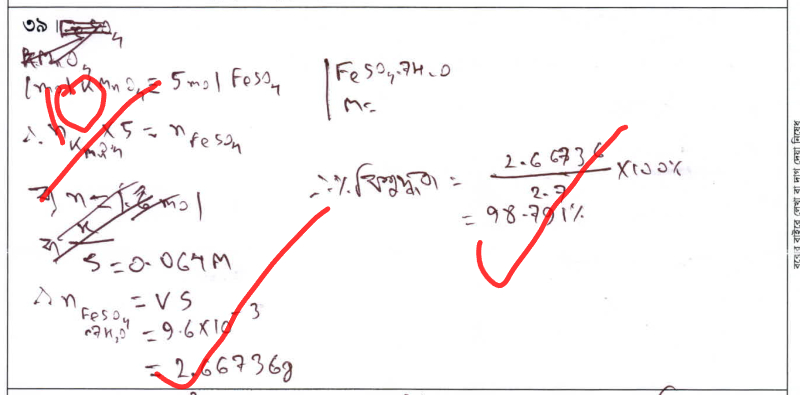 ৩৯।
KMnO₄
1 mol KMnO₄ = 5 mol FeSO₄
∴ n KMnO₄ × 5 = n FeSO₄
S = 0.064 M
∴ n FeSO₄.7H₂O = VS
= 9.6 × 10⁻³
= 2.66736g
FeSO₄.7H₂O
M=
∴ % বিশুদ্ধতা = 2.66736 / 2.7 × 100%
= 98.791%